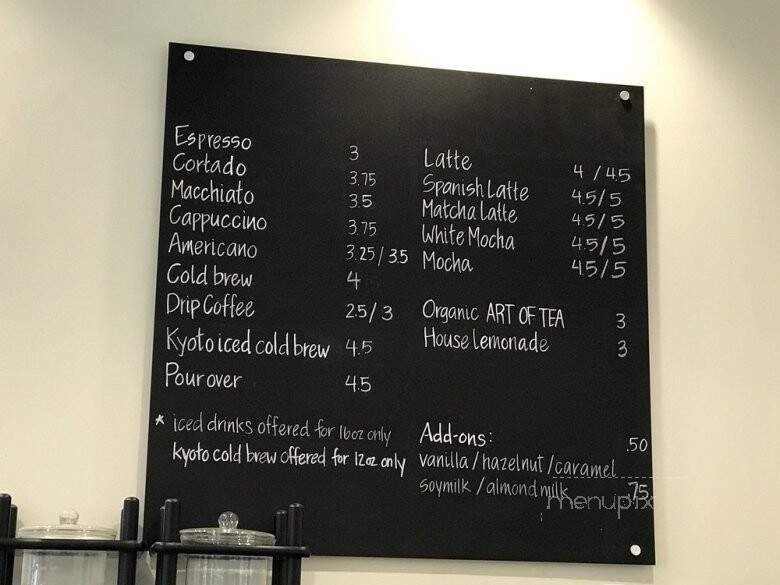 Espresso 3
Cortado 3.75
Macchiato 3.5
Cappuccino 3.75
Americano 3.25 / 3.5
Cold brew 4
Drip Coffee 2.5 / 3
Kyoto iced cold brew 4.5
Pour over 4.5
* iced drinks offered for 16oz only
kyoto cold brew offered for 12oz only
Latte 4 / 4.5
Spanish Latte 4.5 / 5
Matcha Latte 4.5 / 5
White Mocha 4.5 / 5
Mocha 4.5 / 5
Organic ART OF TEA 3
House lemonade 3
Add-ons:
vanilla / hazelnut / caramel .50
soymilk / almond milk .75
menupix